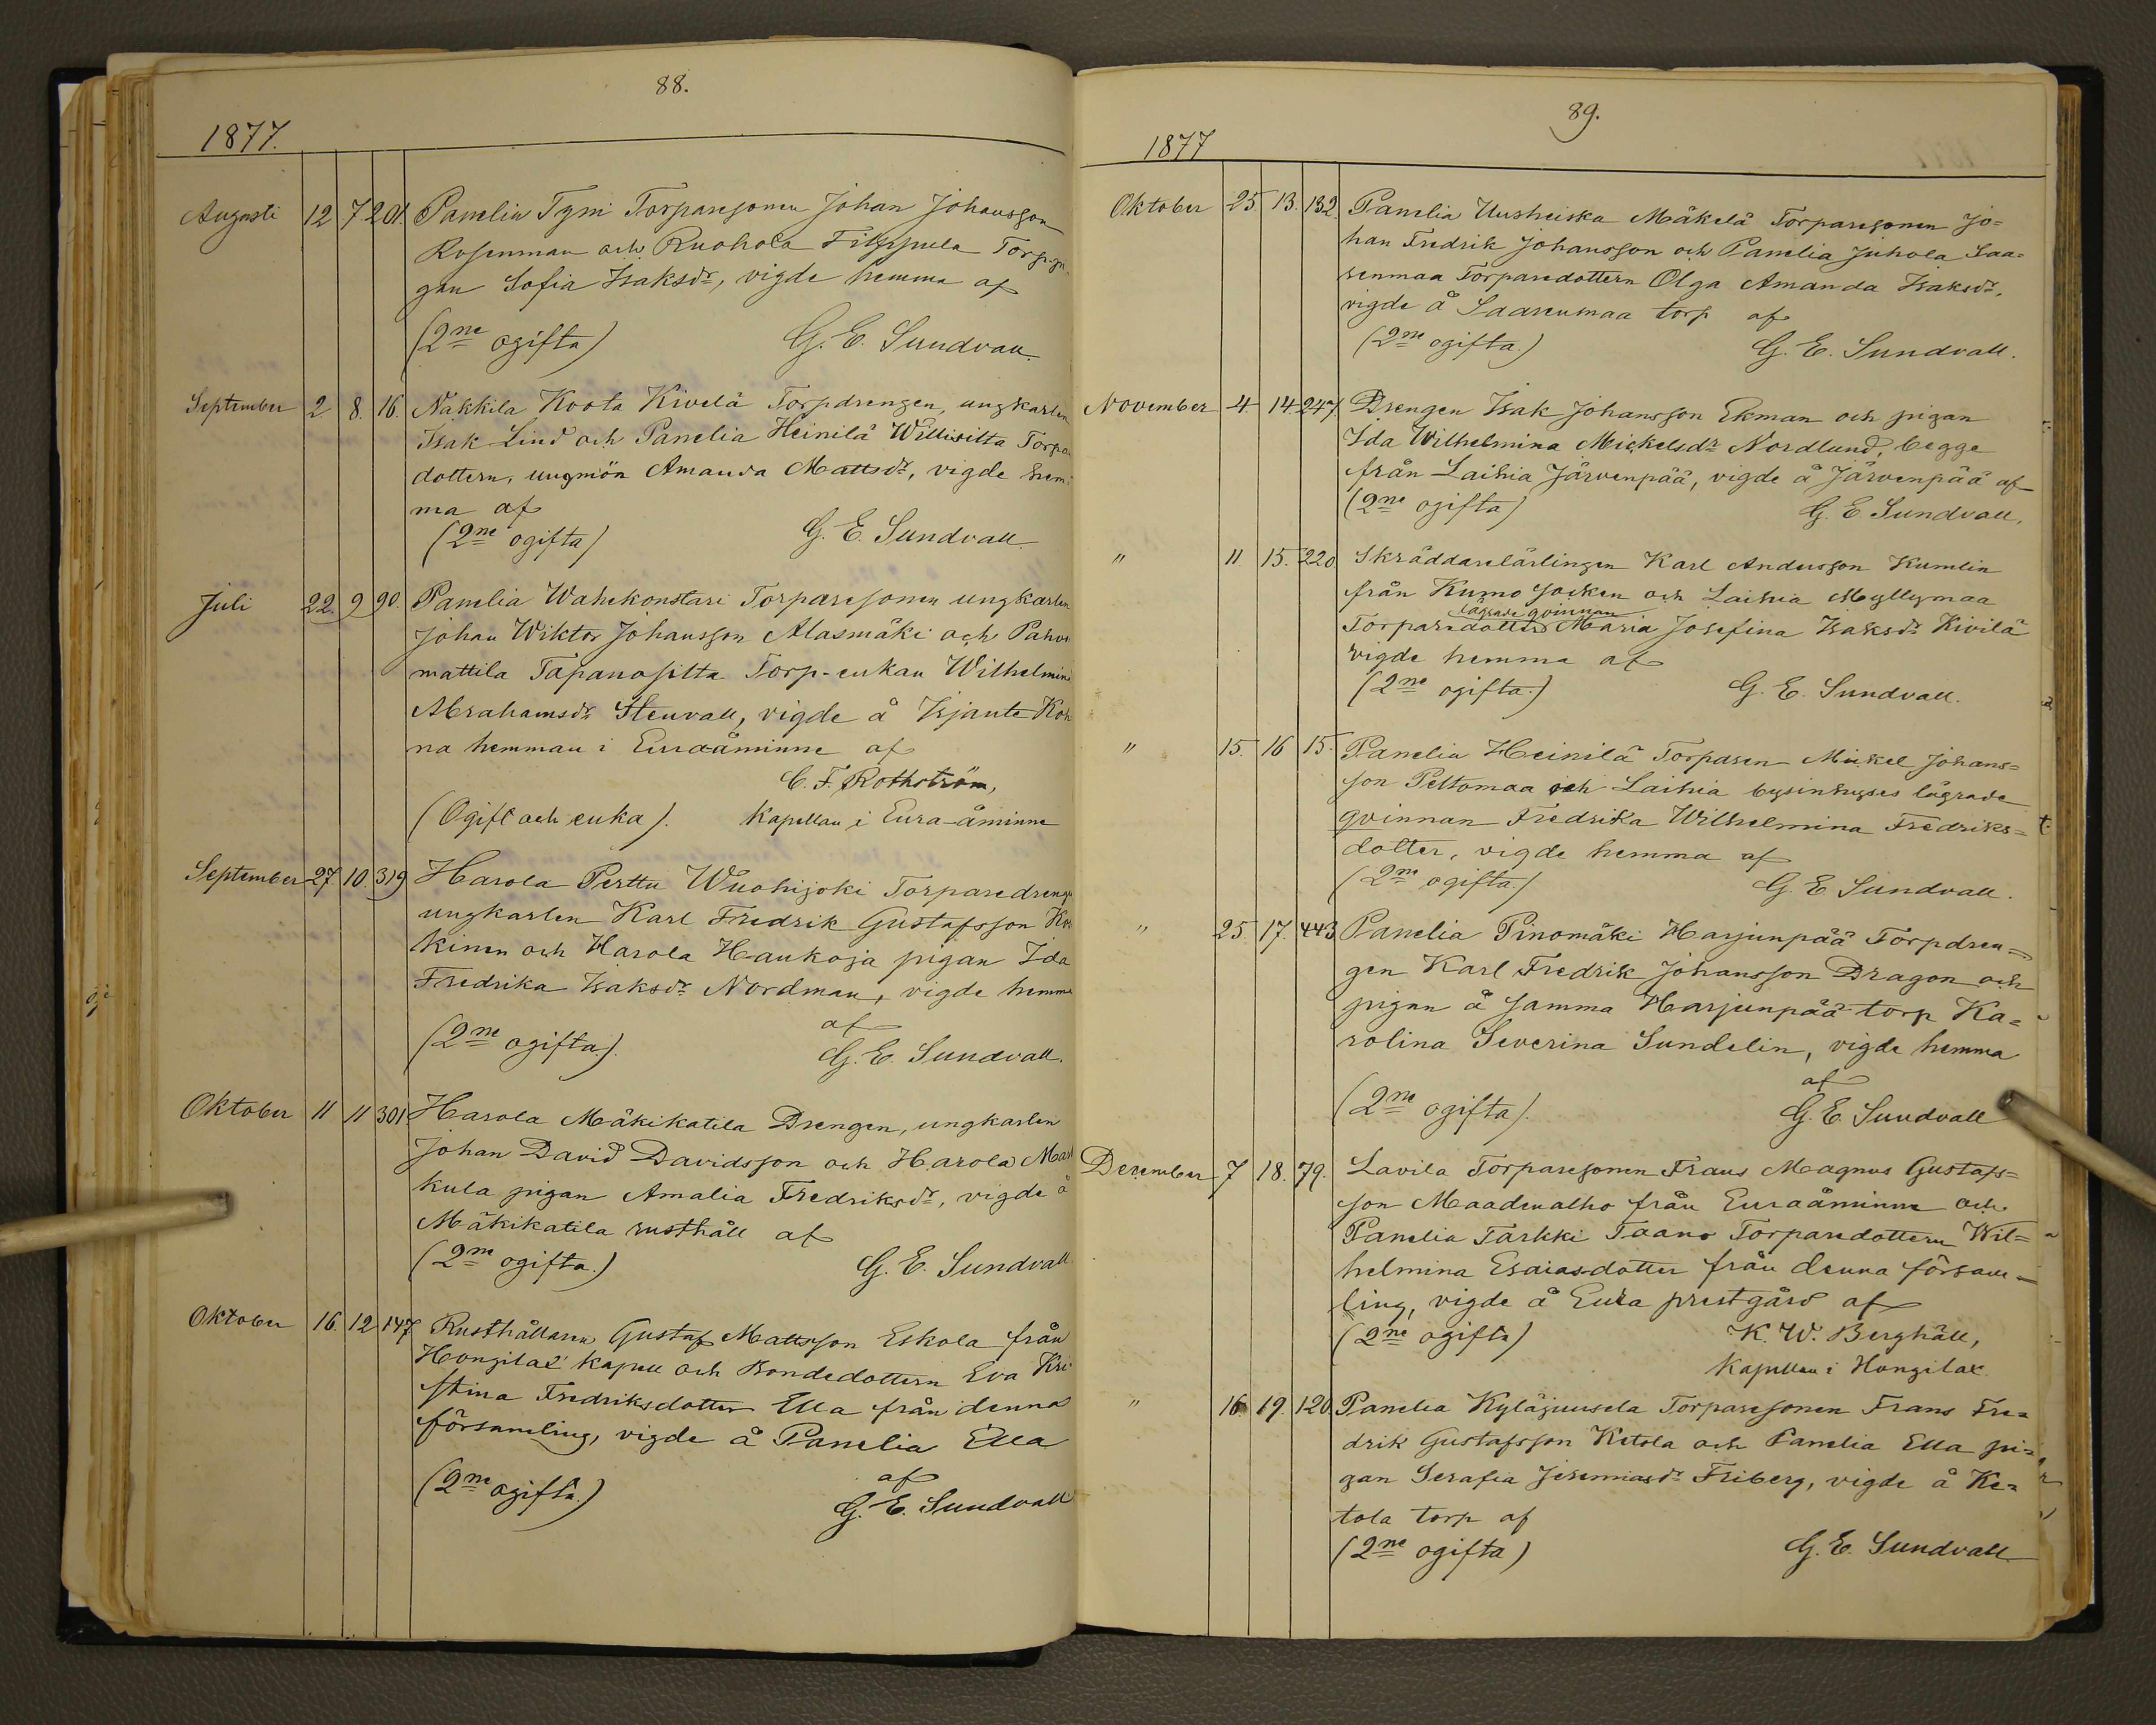 88.
1877.
Augusti 12 7 201. Panelia Tyni Torparesonen Johan Johansson
Rosenman och Ruohola Filppula Torp-pi-
gan Sofia Isaksdr, vigde hemma af
(2ne ogifta) G. E. Sundvall.
September 2 8. 16. Nakkila Koota Kivelä Torpdrengen, ungkarlen
Isak Lind och Panelia Heinilä Torpa
dottern, ungmön Amanda Mattsdr, vigde hem-
ma af
(2ne ogifta) G. E. Sundvall.
Juli 22. 9 90. Panelia Wahekonstari Torparesonen ungkarlen
Johan Wiktor Johansson Alasmäki och
mattila Torp-enkan Wilhelmina
Abrahamsdr Stenvall, vigde å
na hemman i Euraåminne af
C. F. Rothström,
(Ogift och enka). Kapellan i Eura-åminne
September 27 10. 319 Harola Perttu Wuohijoki Torparedrengen
ungkarlen Karl Fredrik Gustafsson
kinen och Harola Haukoja pigan Ida
Fredrika Isaksdr Nordman, vigde hemma
af
(2ne ogifta). G. E. Sundvall.
Oktober 11 11 301 Harola Mäkikatila Drengen, ungkarlen
Johan David Davidsson och Harola Mart
kula pigan Amalia Fredriksdr, vigde å
Mäkikatila rusthåll af
(2ne ogifta.) G. E. Sundvall
Oktober 16. 12 147 Rusthållaren Gustaf Mattsson Eskola från
Hongilax kapell och Bondedottern Eva Kri-
stina Fredriksdotter Ella från denna
församling, vigde å Panelia Ella
af
(2ne ogifta.) G. E. Sundvall
89.
1877
Oktober 25. 13. 132. Panelia Uusheiska Mäkelä Torparesonen Jo=
han Fredrik Johansson och Panelia Juhola Saa=
renmaa Torparedottern Olga Amanda Isaksdr,
vigde å Saarenmaa torp af
(2ne ogifta.) G. E. Sundvall.
November 4. 14. 247 Drengen Isak Johansson Ekman och pigan
Ida Wilhelmina Mickelsdr Nordlund, begge
från Laihia Järvenpää, vigde å Järvenpää af
(2ne ogifta) G. E. Sundvall,
" 11. 15. 220 Skräddarelärlingen Karl Andersson Kumlin
från Kumo socken och Laihia Myllymaa
lägrade qvinnan
Torparedotter Maria Josefina Isaksdr Kivilä
vigde hemma af
(2ne ogifta.) G. E. Sundvall.
" 15. 16 15. Panelia Heinilä Torparen Mickel Johans=
son Peltomaa och Laihia bysinhyses lägrade
qvinnan Fredrika Wilhelmina Fredriks=
dotter, vigde hemma af
(2ne ogifta.) G. E. Sundvall.
" 25. 17. 443 Panelia Pinomäki Harjunpää Torpdren=
gen Karl Fredrik Johansson Dragon och
pigan å samma Harjunpää torp Ka=
rolina Severina Sundelin, vigde hemma
af
(2ne ogifta). G. E. Sundvall
December 7 18. 79. Lavila Torparesonen Frans Magnus Gustafs=
son Maadenalho från Euraåminne och
Panelia Tarkki Taano Torparedottern Wil=
helmina Esaiasdotter från denna försam=
ling, vigde å Eura prestgård af
(2ne ogifta) K. W. Berghäll,
Kapellan i Hongilax.
" 16 19. 120 Panelia Kyläjuusela Torparesonen Frans Fre=
drik Gustafsson Ketola och Panelia Ella pi=
gan Serafia Jeremiasdr Friberg, vigde å Ke=
tola torp af
(2ne ogifta) G. E. Sundvall